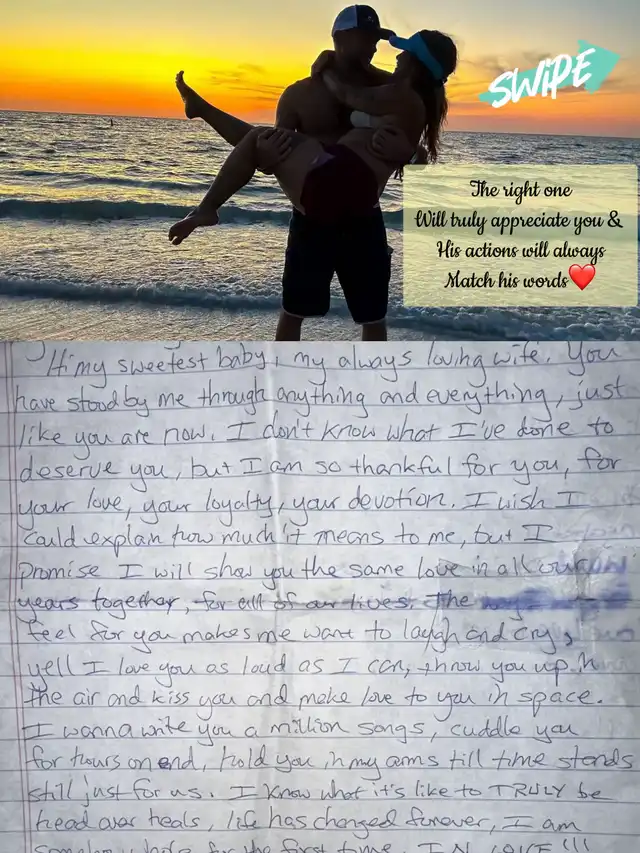 SWIPE
The right one
Will truly appreciate you &
His actions will always
Match his words❤️
Hi my sweetest baby, my always loving wife. You
have stood by me through anything and everything, just
like you are now. I don't know what I've done to
deserve you, but I am so thankful for you, for
your love, your loyalty, your devotion. I wish I
could explain how much it means to me, but I
promise I will show you the same love in all our
years together, for all of our lives. The
feel for you makes me want to laugh and cry,
yell I love you as loud as I can, throw you up in
the air and kiss you and make love to you in space.
I wanna write you a million songs, cuddle you
for hours on end, hold you in my arms till time stands
still just for us. I know what it's like to TRULY be
head over heals, life has changed forever, I am
for the first time IN LOVE!!!